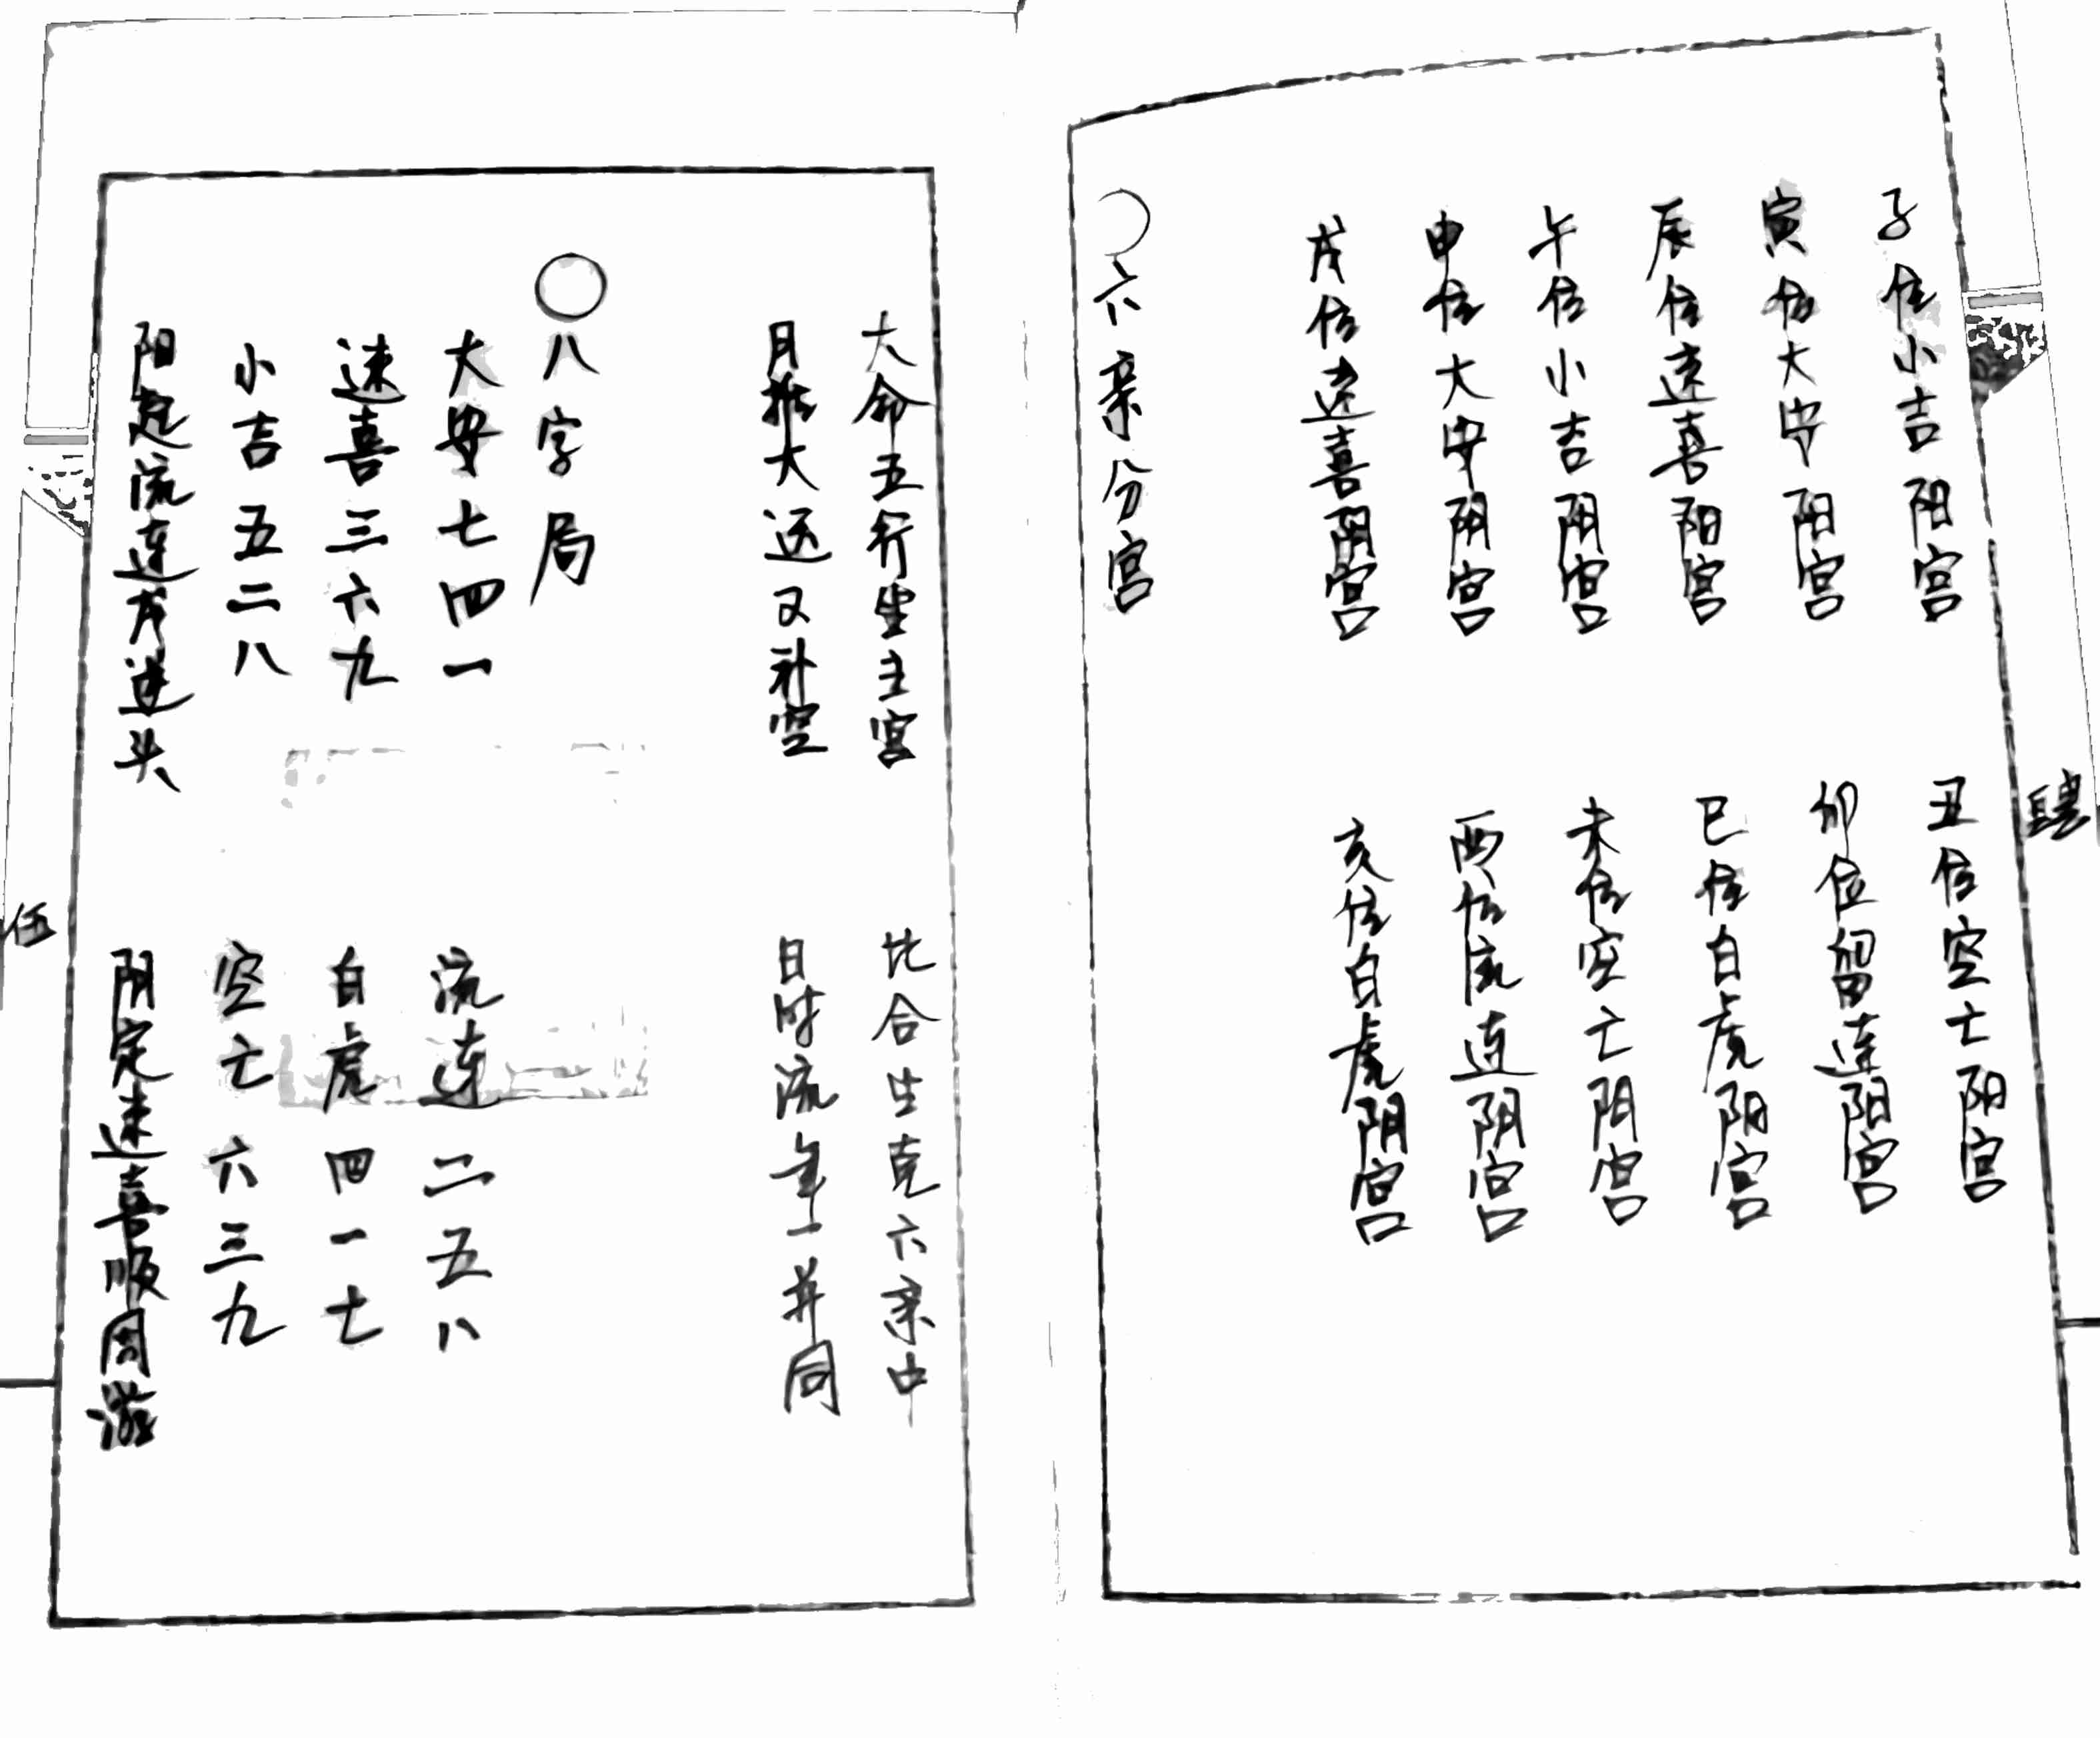 子位小吉阳宫 丑位空亡阳宫
寅位大安阳宫 卯位留连阳宫
辰位速喜阳宫 巳位白虎阳宫
午位小吉阴宫 未位空亡阴宫
申位大安阴宫 酉位流连阴宫
戌位速喜阴宫 亥位白虎阴宫
〇六亲分宫
大命五行坐主宫 比合生克六亲中
月推大运又补空 日时流年一并同
〇八字局
大安七四一 流连二五八
速喜三六九 白虎四一七
小吉五二八 空亡六三九
阳起流连戌逆头 阴定速喜顺周游
伍